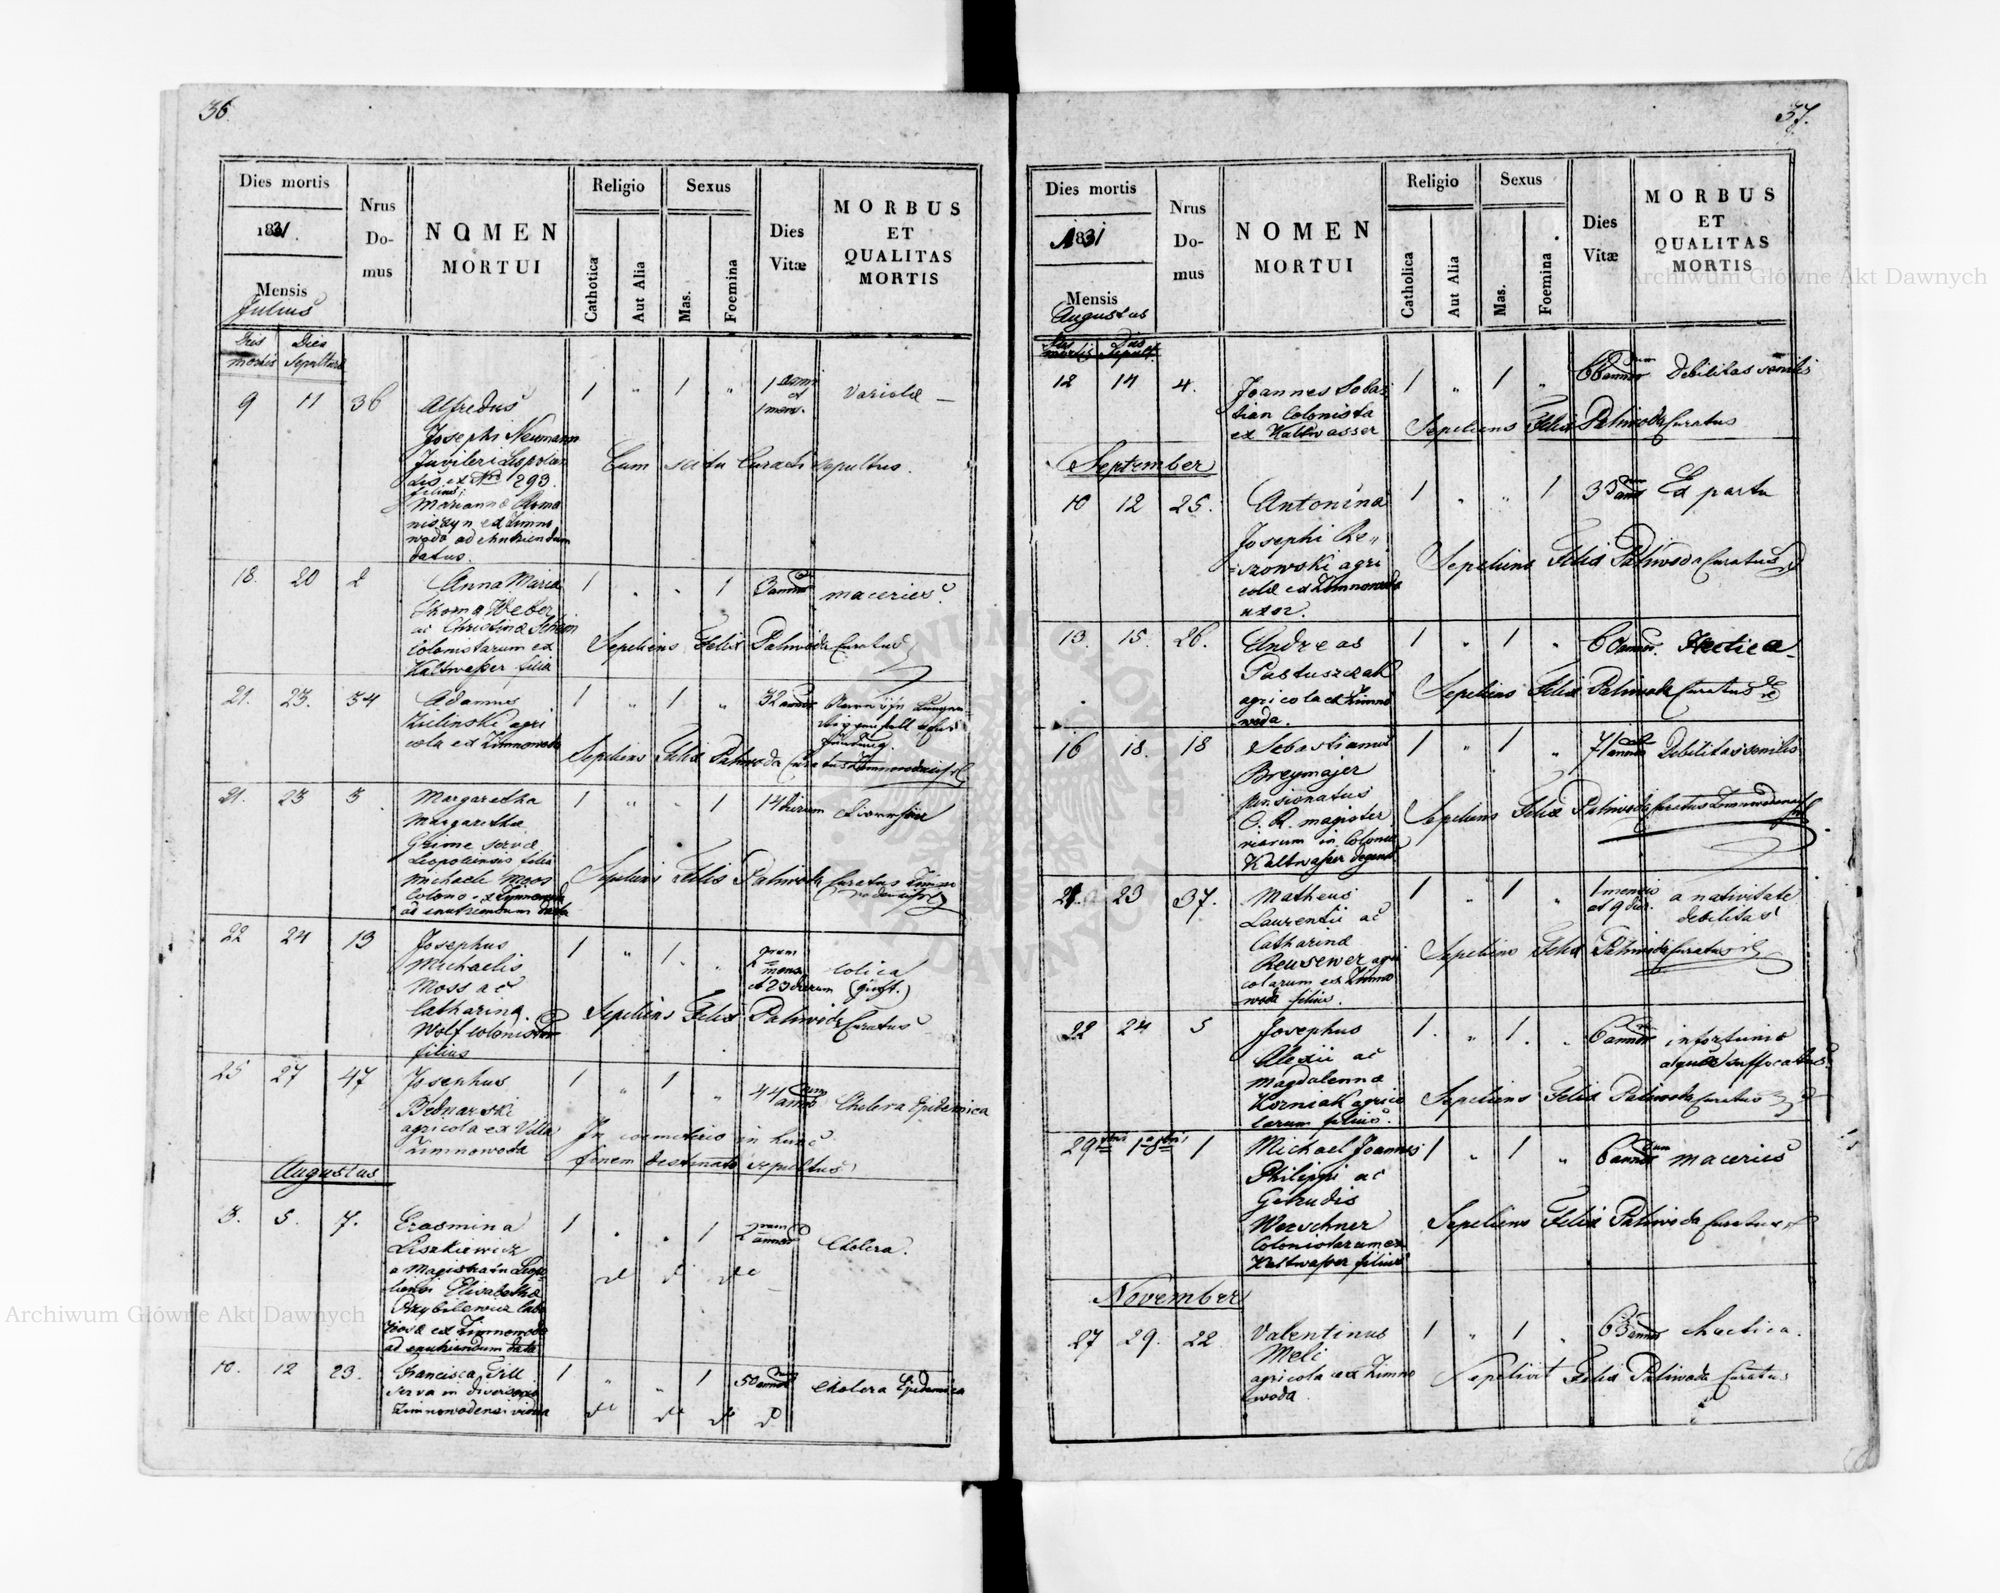 36.
Dies mortis
1831.
Mensis
Julius
Nrus
Do-
mus
NOMEN
MORTUI
Religio
Catholica
Aut Alia
Sexus
Mas.
Foemina
Dies
Vitæ
MORBUS
ET
QUALITAS
MORTIS
Dies mortis
Dies Sepulturæ
9 11 36
Alfredus
Josephi Neumann
Juvileri Leopolien
sis ex Nro 293.
filius;
Marianna Roma
niszyn ex Zimno
woda ad enutriendum
datus.
1 " 1 "
1 anni
et
1 mens.
Variolæ —
Cum scitu Curati sepultus.
18. 20 2
Anna Maria
Thoma Weber
ac Christina
colonistarum ex
Kaltwasser filia
1 " " 1
3 annor
maceries.
Sepeliens Felix Paliwoda Curatus
21. 23. 34
Adamus
Zielinski agri
cola ex Zimnowoda
1 " 1 "
32 annor
Sepeliens Felix Paliwoda Curatus Zimnowodensis
21. 23 3
Margaretha
Margaretha
Grime servæ
Leopoliensis filia
Michaeli Moos
Colono ex Zimnowoda
ad enutriendum data
1 " " 1
14 dierum
Sepeliens Felix Paliwoda Curatus Zimno
wodensis
22 24 13
Josephus
Michaelis
Moss ac
Catharina
Wolf colonistar
filius
1 " 1 "
2 mens.
et 23 dierum
Colica
(gicht.)
Sepeliens Felix Paliwoda Curatus
25 27 47
Josephus
Bednarski
agricola ex Villa
Zimnowoda
1 " 1 "
44 annor
Cholera Epidemica
In coemeterio in hunc
finem destinato sepultus
Augustus
3. 5. 7.
Erasmina
Liszkiewicz
a Magistratu Leopo
liensi Elisabetha
Przybilewicz
ex Zimnowoda
ad enutriendum data
1 " " 1
2 annor
Cholera.
10. 12 23.
Francisca Till
serva in diversorio
Zimnowodensi vidua
1 " " 1
50 annor
Cholera Epidemica
37.
Dies mortis
1831
Mensis
Augustus
Nrus
Do-
mus
NOMEN
MORTUI
Religio
Catholica
Aut Alia
Sexus
Mas.
Foemina
Dies
Vitæ
MORBUS
ET
QUALITAS
MORTIS
Dies mortis
Dies Sepult.
12 14 4.
Joannes Sebas
tian Colonista
ex Kaltwasser
1 " 1 "
66 annor
Debilitas senilis
Sepeliens Felix Paliwoda Curatus
September
10 12 25.
Antonina
Josephi Re
szowski agri
colæ ex Zimnowoda
uxor.
1 " " 1
35 annor
Ex partu
Sepeliens Felix Paliwoda Curatus
13. 15. 26.
Andreas
Pastuszczak
agricola ex Zimno
woda.
1 " 1 "
60 annor.
Hectica
Sepeliens Felix Paliwoda Curatus
16 18. 18
Sebastianus
Breymajer
pensionatus
C. R. magister
viarum in Colonia
Kaltwasser degens
1 " 1 "
71 annor
Debilitas senilis
Sepeliens Felix Paliwoda Curatus Zimnowodensis
21. 23 37.
Matheus
Laurentii ac
Catharinæ
Reusewer agri
colarum ex Zimno
woda filius.
1 " 1 "
1 mensis
et 9 dier.
a nativitate
debilitas
Sepeliens Felix Paliwoda Curatus
22 24 5
Josephus
Alexii ac
Magdalenna
Korniak agrico
larum filius.
1 " 1 "
6 annor
infortunio
aquæ suffocatus
Sepeliens Felix Paliwoda Curatus
29 7bris 1a 8bris 1
Michael Joannes
Philippi ac
Getrudis
Werschner
Colonistarum ex
Kaltwasser filius
1 " 1 "
6 annor
macries
Sepeliens Felix Paliwoda Curatus
November
27 29. 22
Valentinus
Meli
agricola ex Zimno
woda
1 " 1 "
63 annor
Hectica.
Sepelivit Felix Paliwoda Curatus
Archiwum Główne Akt Dawnych
Archiwum Główne Akt Dawnych